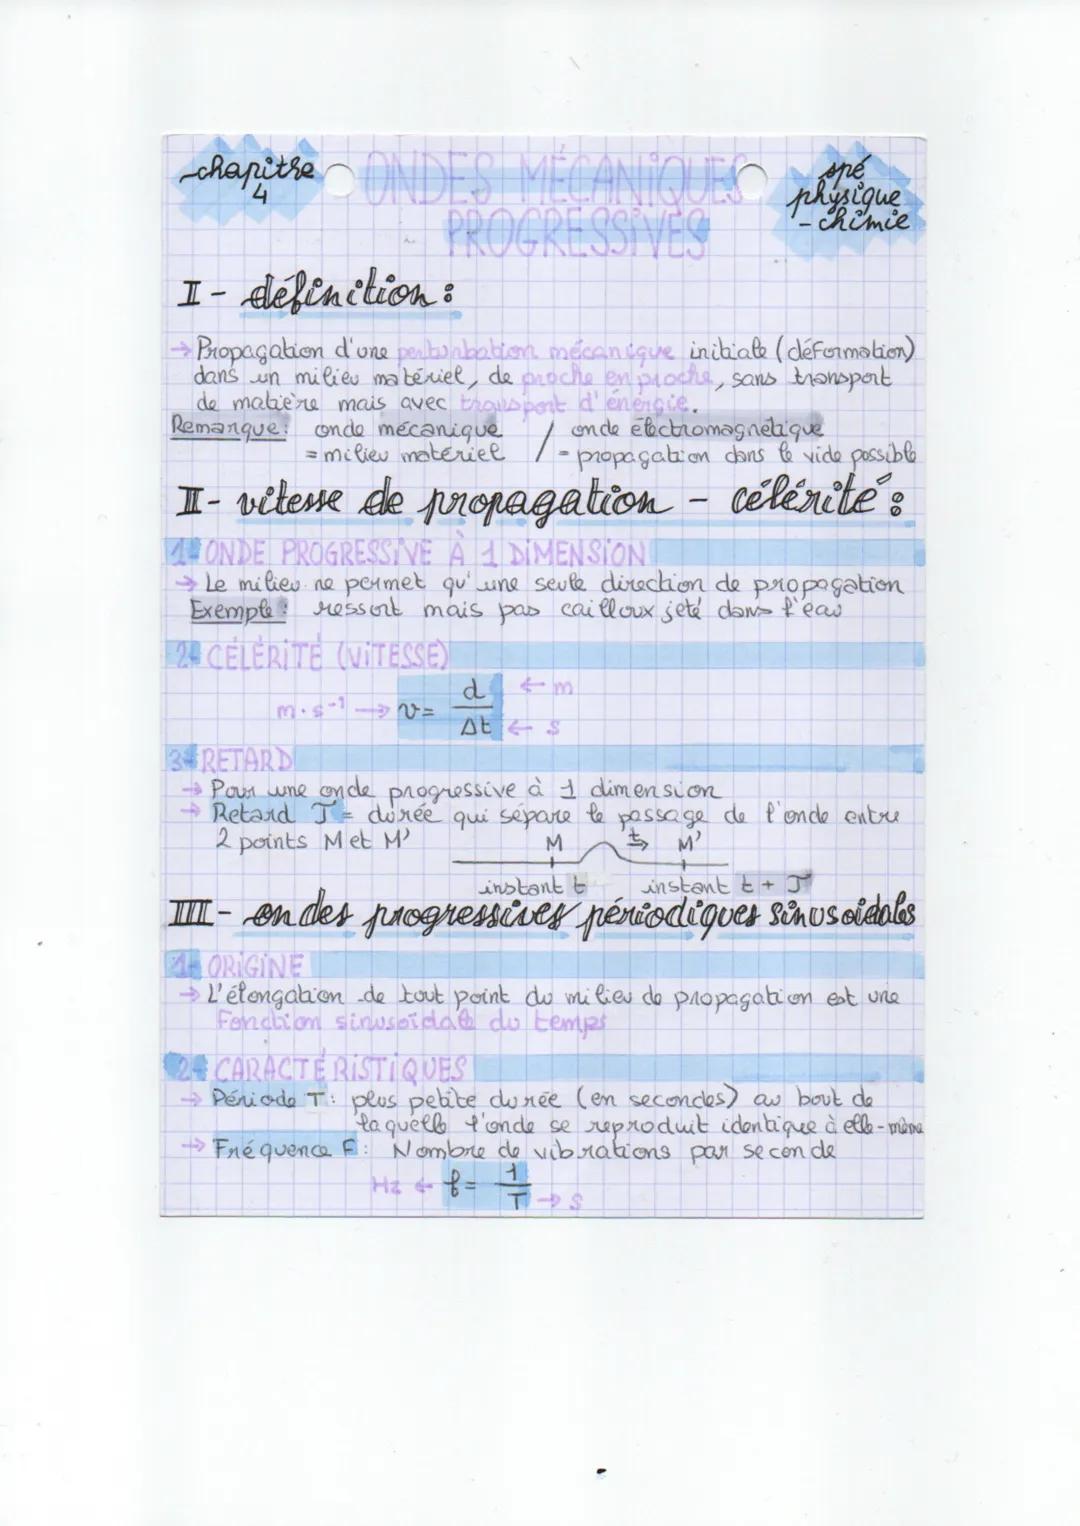 chapitre 4
ONDES MÉCANIQUES PROGRESSIVES
spé physique - chimie
I - définition :
→ Propagation d'une perturbation mécanique initiale (déformation)
dans un milieu matériel, de proche en proche, sans transport
de matière mais avec transport d'énergie.
Remarque : onde mécanique / onde électromagnétique
= milieu matériel / = propagation dans le vide possible
II - vitesse de propagation - célérité :
1- ONDE PROGRESSIVE À 1 DIMENSION
→ Le milieu ne permet qu'une seule direction de propagation
Exemple : ressort mais pas cailloux jeté dans l'eau
2- CÉLÉRITÉ (VITESSE)
m·s⁻¹ → v = d/Δt ← m ← s
3- RETARD
→ Pour une onde progressive à 1 dimension
→ Retard T = durée qui sépare le passage de l'onde entre
2 points M et M'
M t→ M'
instant t instant t + T
III - ondes progressives périodiques sinusoidales
1- ORIGINE
→ L'élongation de tout point du milieu de propagation est une
Fonction sinusoïdale du temps
2- CARACTÉRISTIQUES
→ Période T : plus petite durée (en secondes) au bout de
laquelle l'onde se reproduit identique à elle-même
→ Fréquence F : Nombre de vibrations par seconde
Hz ← f = 1/T → s